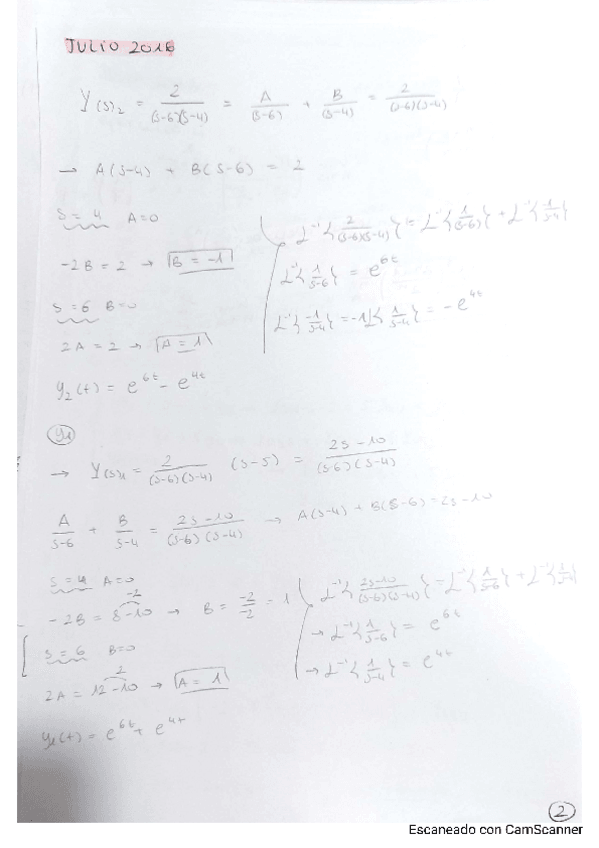 JULIO 2016
Y(s)₂ = 2/((s-6)(s-4)) = A/(s-6) + B/(s-4) = 2/((s-6)(s-4))
→ A(s-4) + B(s-6) = 2
s = 4 A=0
-2B = 2 → B = -1
s = 6 B=0
2A = 2 → A = 1
y₂(t) = e^6t - e^4t
L⁻¹{2/((s-6)(s-4))} = L⁻¹{1/(s-6)} + L⁻¹{1/(s-4)}
L⁻¹{1/(s-6)} = e^6t
L⁻¹{-1/(s-4)} = -1L{1/(s-4)} = -e^4t
y₁
→ Y(s)₁ = 2/((s-6)(s-4)) (s-5) = (2s-10)/((s-6)(s-4))
A/(s-6) + B/(s-4) = (2s-10)/((s-6)(s-4)) → A(s-4) + B(s-6) = 2s-10
s = 4 A=0
-2
-2B = 8-10 → B = -2/-2 = 1
s = 6 B=0
2
2A = 12-10 → A = 1
y₁(t) = e^6t + e^4t
L⁻¹{(2s-10)/((s-6)(s-4))} = L⁻¹{1/(s-6)} + L⁻¹{1/(s-4)}
→ L⁻¹{1/(s-6)} = e^6t
→ L⁻¹{1/(s-4)} = e^4t
2
Escaneado con CamScanner